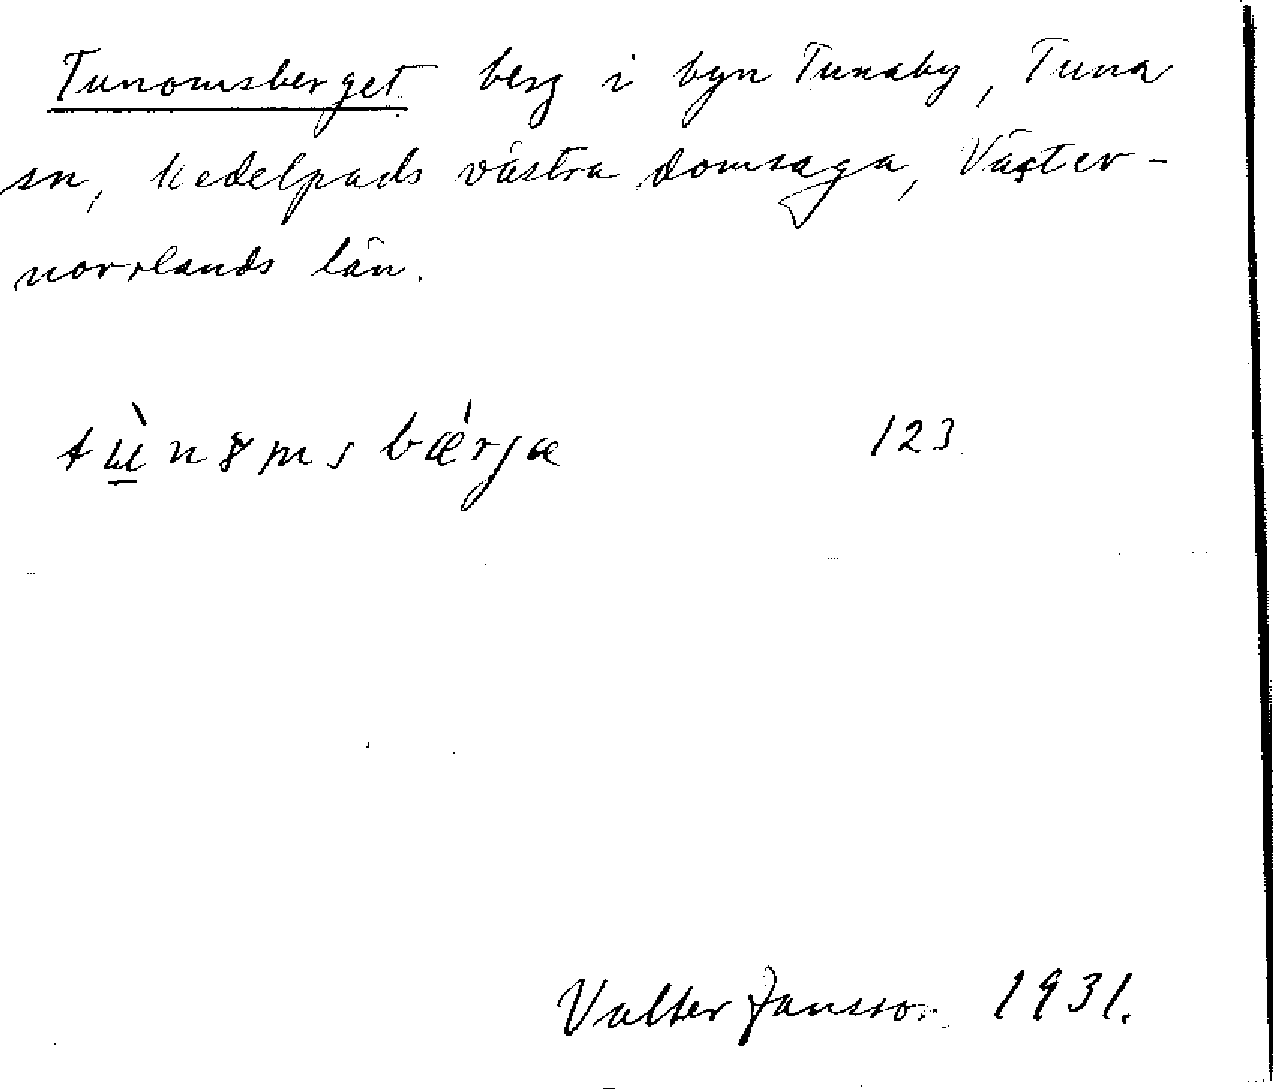 Tunomsberget berg i byn Tunaby, Tuna
sn, Medelpads västra domsaga, Väster-
norrlands län.
tɯ̀nɤmsbǽrjæ 123
Valter Jansson 1931.